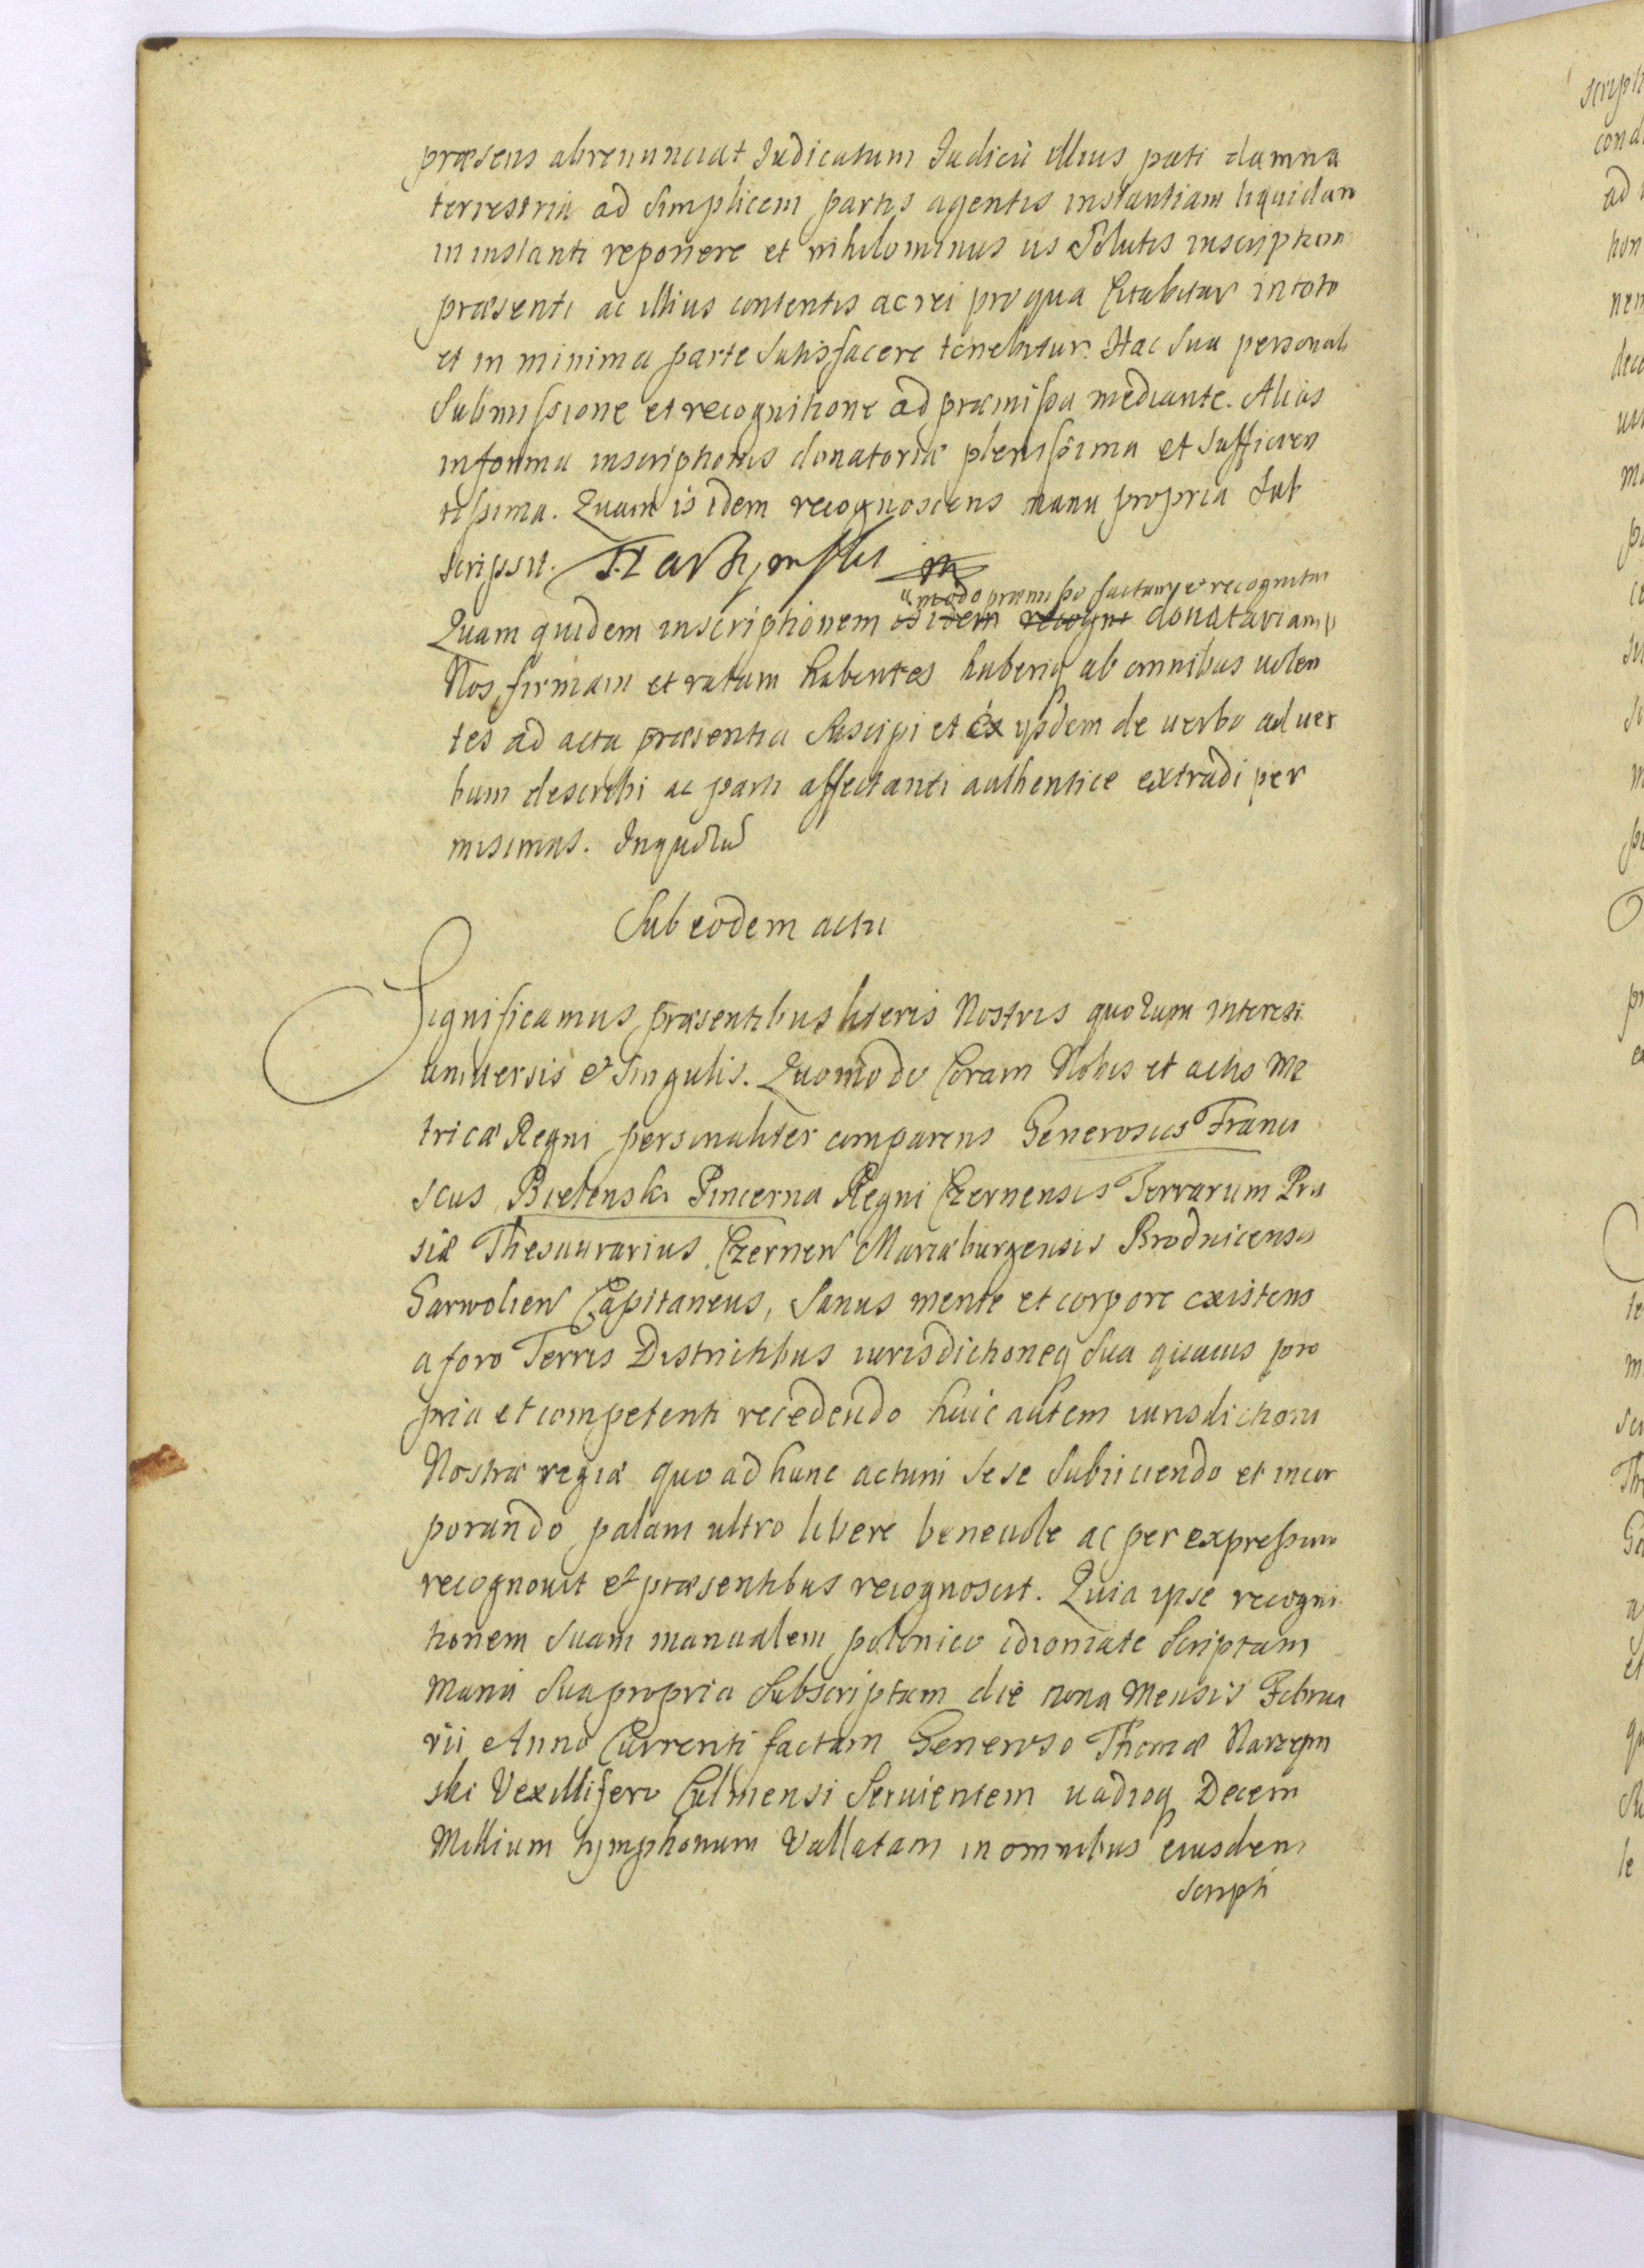 præsens abrenunciat Iudicatum Iudicii illius pati damna
terrestria ad simplicem partis agentis instantiam liquidan
in instanti reponere et nihilominus iis solutis inscription
præsenti ac illius contentis ac rei pro qua Citabitur in toto
et in minima parte satisfacere tenebitur. Hac sua personali
Submissione et recognitione ad præmissa mediante. Alias
in forma inscriptionis donatoriæ plenissima et sufficien
tissima. Quam is idem recognoscens manu propria Sub
scripsit.
modo præmisso factam et recognitam
Quam quidem inscriptionem is idem recogn donatariam
Nos firmam et ratam habentes haberiq ab omnibus uolen
tes ad acta præsentia suscipi et ex ijsdem de uerbo ad uer
bum describi ac parti affectanti authentice extradi per
misimus. In quor
Sub eodem actu
Significamus præsentibus literis Nostris quorum interest
uniuersis et singulis. Quomodo Coram Nobis et actis Me
tricæ Regni personaliter comparens Generosus Franci
scus Bielenski Pincerna Regni Czernensis Terrarum Pru
siæ Thesaurarius Czernen Mariæburgensis Brodnicensis
Garwolien Capitaneus, Sanus mente et corpore existens
a foro Terris Districtibus iurisdictioneq sua quauis pro
pria et competenti recedendo huic autem iurisdictioni
Nostræ regiæ quo ad hunc actum sese subiiciendo et incor
porando palam ultro libere beneuole ac per expressum
recognouit et præsentibus recognoscit. Quia ipse recogni
tionem suam manualem polonico idiomate Scriptam
manu sua propria subscriptam die nona Mensis Februa
rii Anno Currenti factam Generoso Thomæ Narzym
ski Vexillifero Culmensi seruientem uadioq Decem
Millium tymphonum Vallatam in omnibus eiusdem
scripti